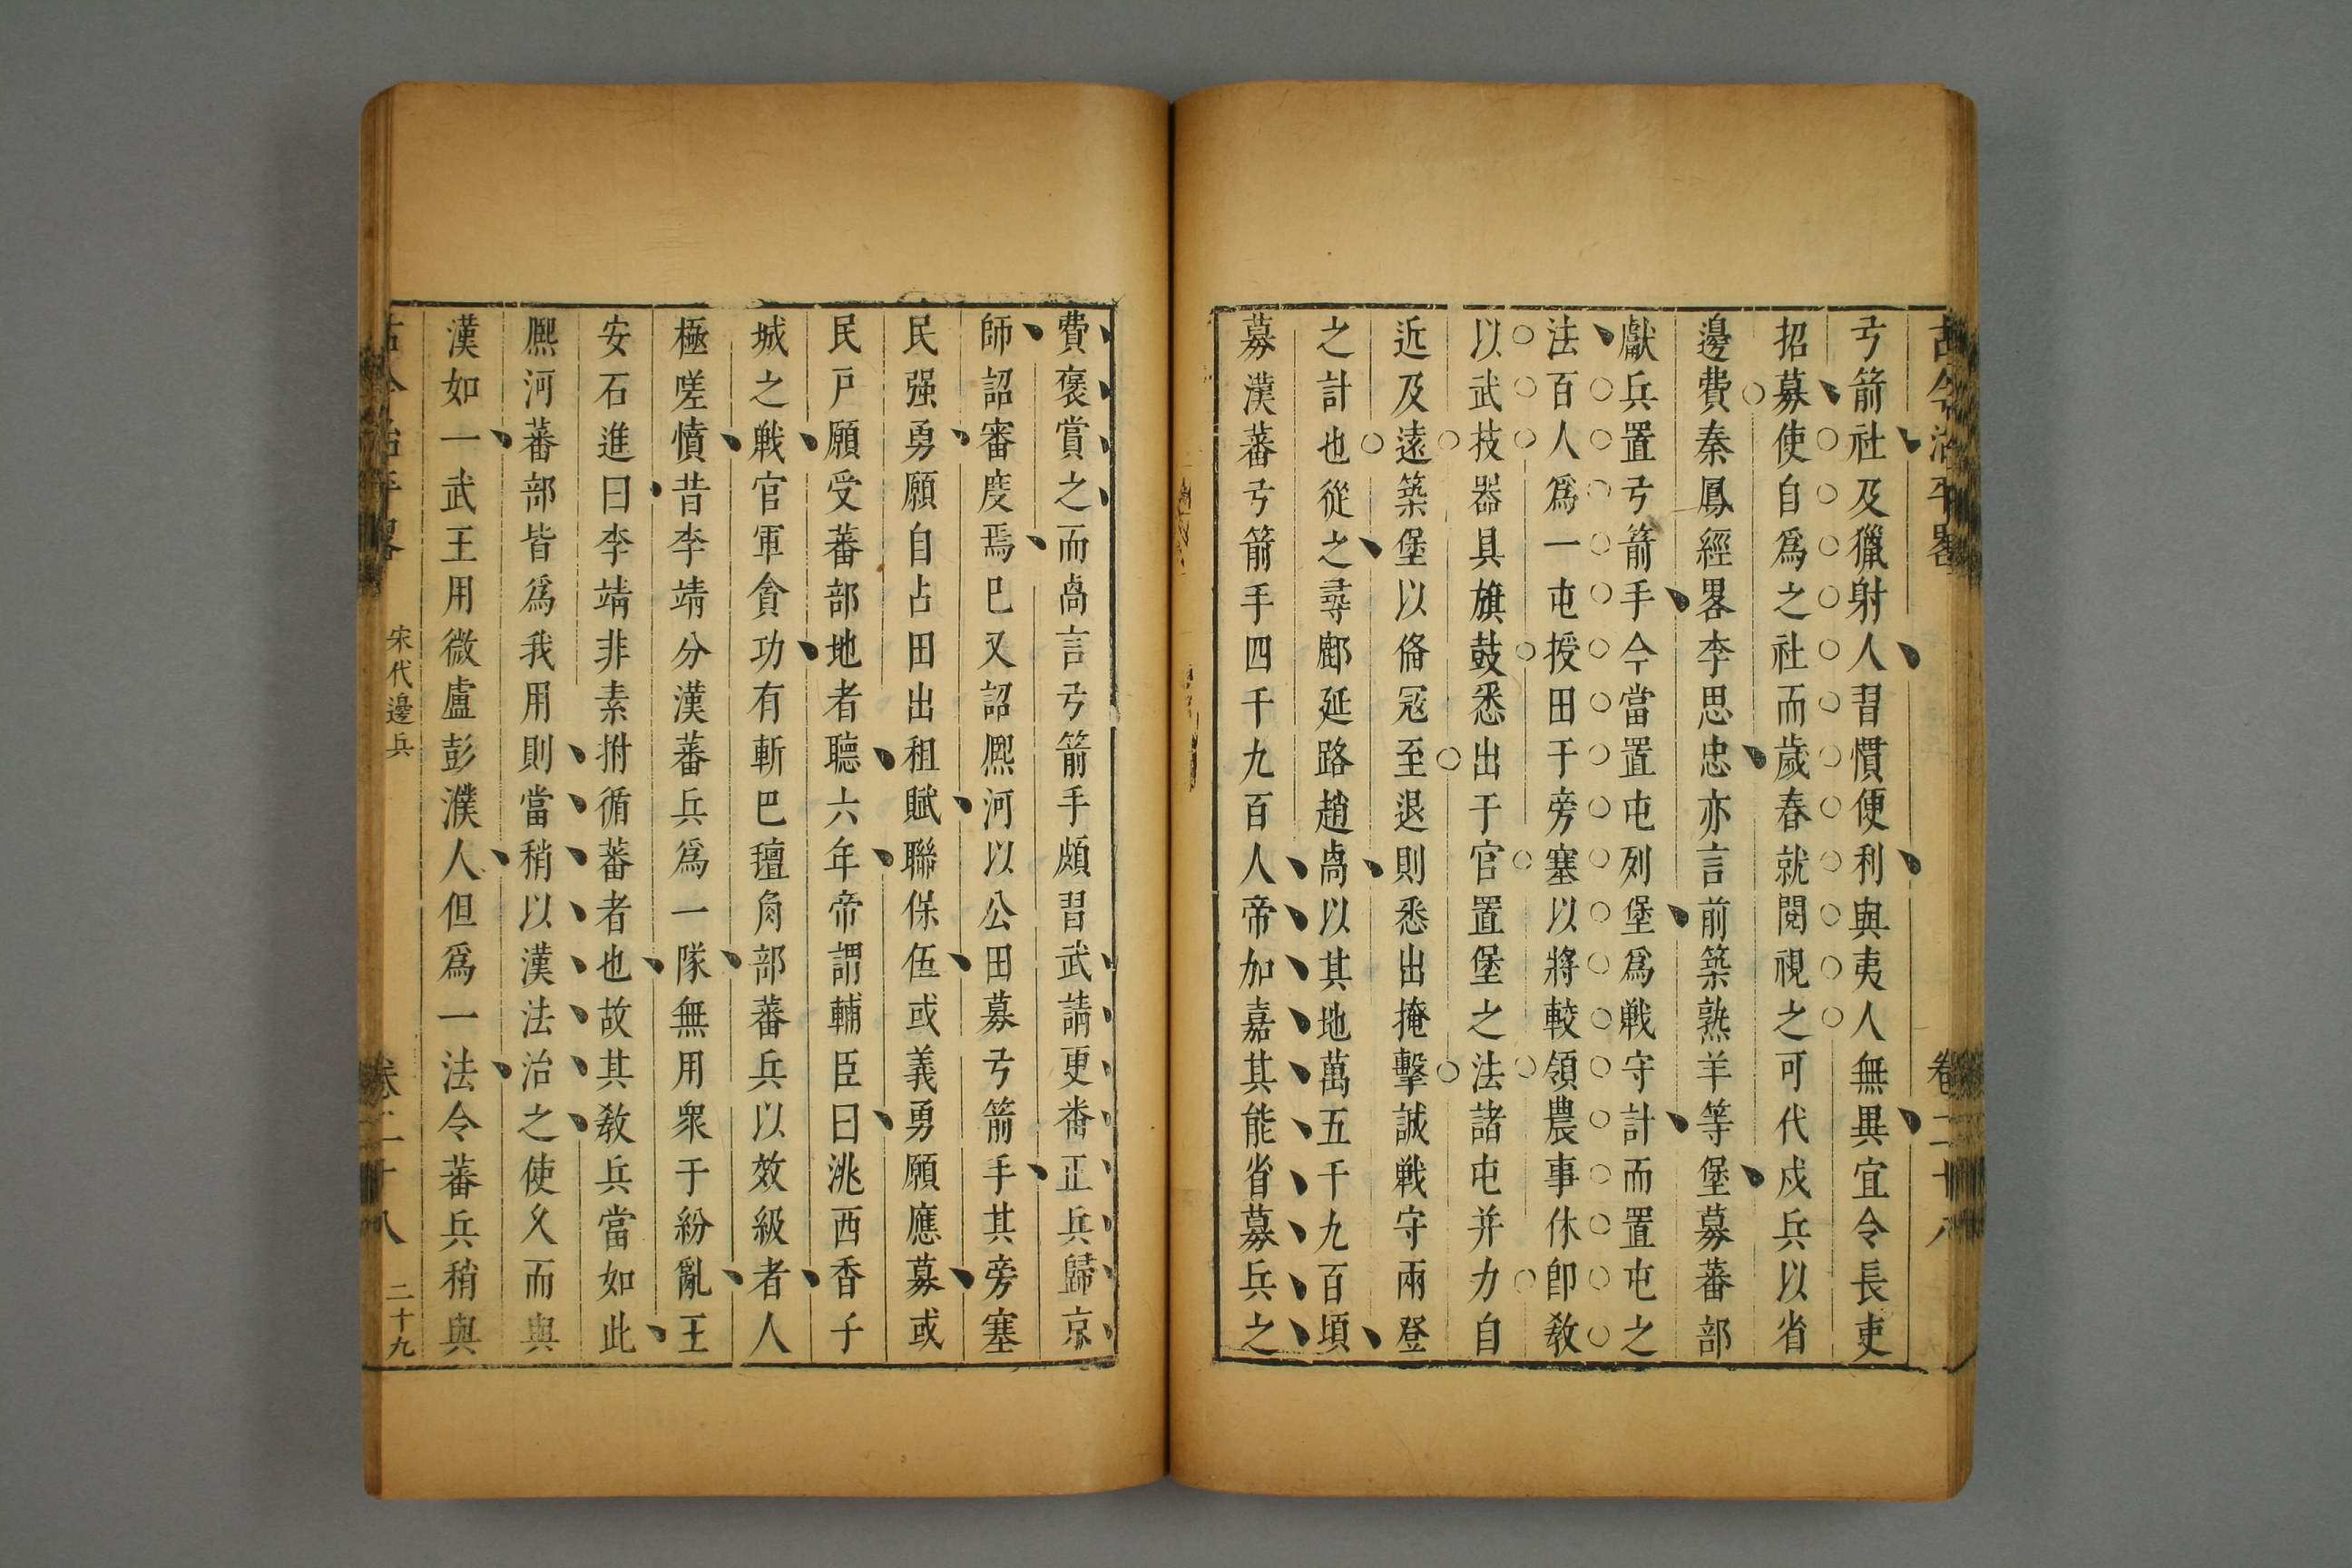 古今治平畧
卷二十八
弓箭社及獵射人習慣便利與夷人無異宜令長吏
招募使自爲之社而歲春就閱視之可代戍兵以省
邊費秦鳳經畧李思忠亦言前築熟羊等堡募蕃部
獻兵置弓箭手今當置屯列堡爲戰守計而置屯之
法百人爲一屯授田于旁塞以將較領農事休卽敎
以武技器具旗鼓悉出于官置堡之法諸屯并力自
近及遠築堡以俻冦至退則悉出掩擊誠戰守兩登
之計也從之尋鄜延路趙卨以其地萬五千九百頃
募漢蕃弓箭手四千九百人帝加嘉其能省募兵之
費褒賞之而卨言弓箭手頗習武請更番正兵歸京
師詔審度焉巳又詔熈河以公田募弓箭手其旁塞
民强勇願自占田出租賦聯保伍或義勇願應募或
民戸願受蕃部地者聽六年帝謂輔臣曰洮西香子
城之戰官軍貪功有斬巴氊角部蕃兵以效級者人
極嗟憤昔李靖分漢蕃兵爲一隊無用衆于紛亂王
安石進曰李靖非素拊循蕃者也故其敎兵當如此
熈河蕃部皆爲我用則當稍以漢法治之使久而與
漢如一武王用微盧彭濮人但爲一法令蕃兵稍與
古今治平畧
宋代邊兵
卷二十八
二十九